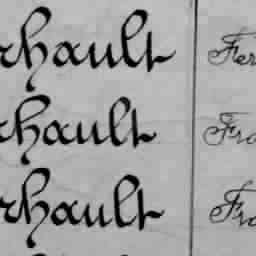 rhault Fer
rhault Fra
rhault Fra